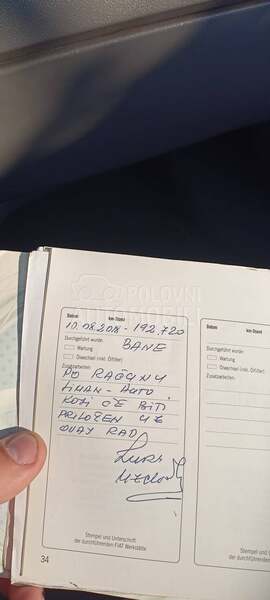 POLOVNI
AUTOMOBILI
Datum km-Stand
10.08.2018 - 192.720
Durchgeführt wurde: BANE
Wartung
Ölwechsel (inkl. Ölfilter)
Zusatzarbeiten:
PO RAČUNU
LIMAN - AUTO,
KOJI ĆE BITI
PRILOŽEN UZ
OVAJ RAD
Stempel und Unterschrift
der durchführenden FIAT Werkstätte
34
Datum km-Stand
Durchgeführt wurde:
Wartung
Ölwechsel (inkl. Ölfilter)
Zusatzarbeiten: